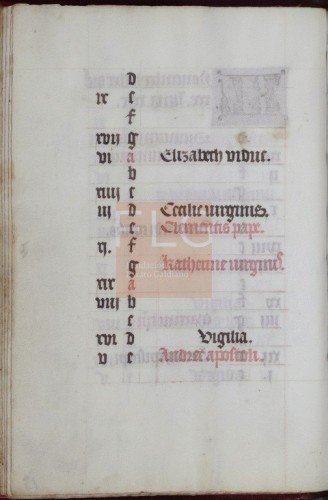 d
ix e
f
xvij g
vi a Elizabeth vidue.
b
xiiij c
iij d Cecilie virginis.
e Clementis pape.
xj. f
g Katherine virginis.
xix a
viij b
c
xvi d Vigilia.
v e Andree apostoli.